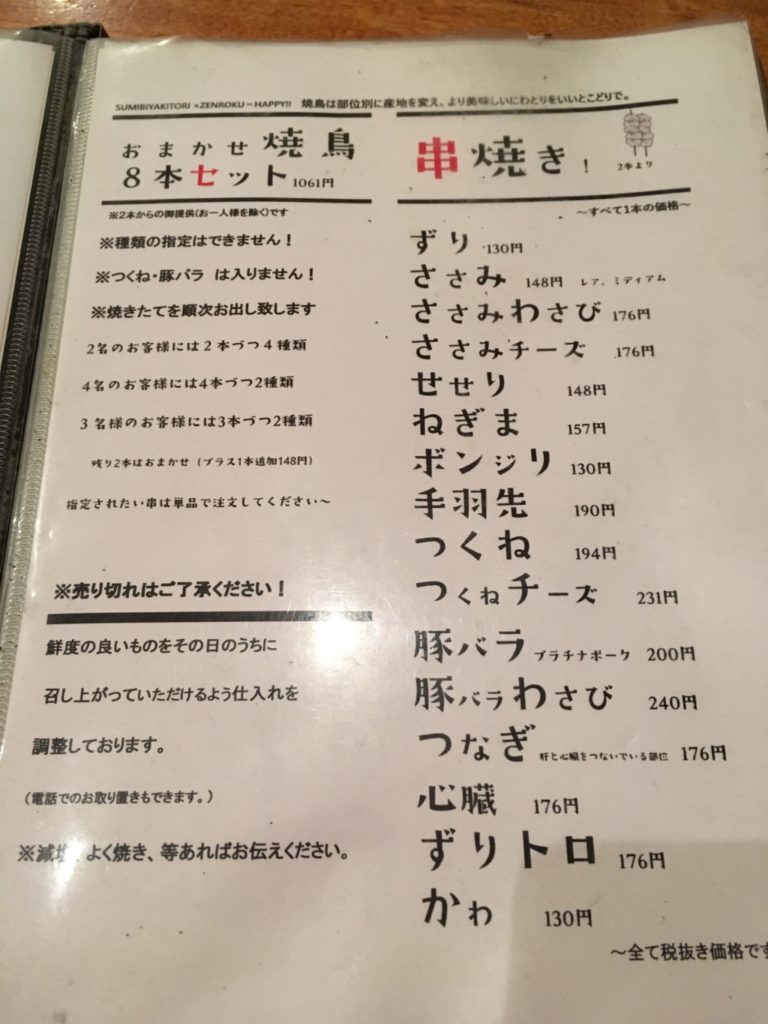 SUMIBIYAKITORI×ZENROKU=HAPPY!! 焼鳥は部位別に産地を変え、より美味しいにわとりをいいとこどりで。
おまかせ焼鳥
8本セット 1061円
※2本からの御提供(お一人様を除く)です
※種類の指定はできません！
※つくね・豚バラ は入りません！
※焼きたてを順次お出し致します
2名のお客様には2本づつ4種類
4名のお客様には4本づつ2種類
3名様のお客様には3本づつ2種類
残り2本はおまかせ (プラス1本追加148円)
指定されたい串は単品で注文してください～
※売り切れはご了承ください！
鮮度の良いものをその日のうちに
召し上がっていただけるよう仕入れを
調整しております。
(電話でのお取り置きもできます。)
※減塩、よく焼き、等あればお伝えください。
串焼き！ 2本より
～すべて1本の価格～
ずり 130円
ささみ 148円 レア、ミディアム
ささみわさび 176円
ささみチーズ 176円
せせり 148円
ねぎま 157円
ボンジリ 130円
手羽先 190円
つくね 194円
つくねチーズ 231円
豚バラ プラチナポーク 200円
豚バラわさび 240円
つなぎ 肝と心臓をつないでいる部位 176円
心臓 176円
ずりトロ 176円
かわ 130円
～全て税抜き価格です